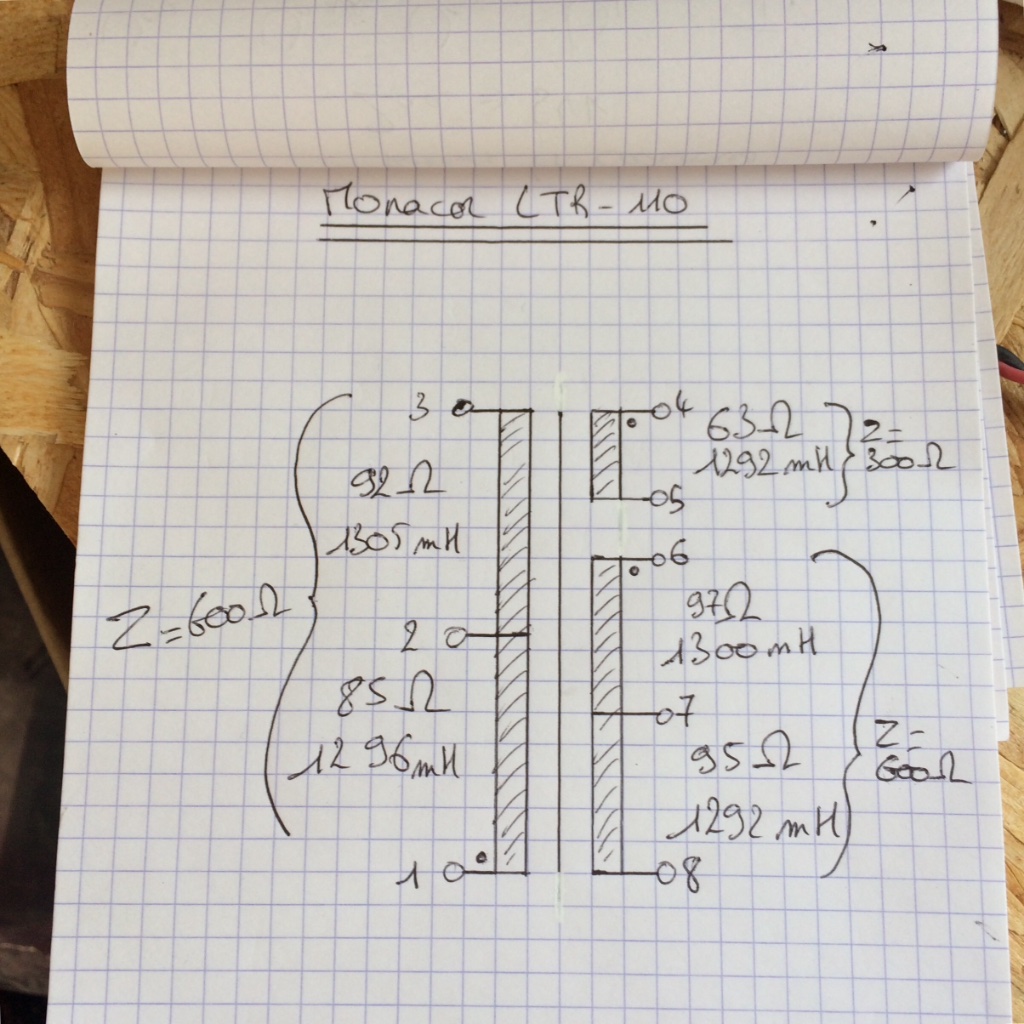 Monacor LTR-110
3
92Ω
1305mH
Z=600Ω
2
85Ω
1296mH
1
4
63Ω
1292mH
Z=
300Ω
5
6
97Ω
1300mH
7
95Ω
1292mH
Z=
600Ω
8